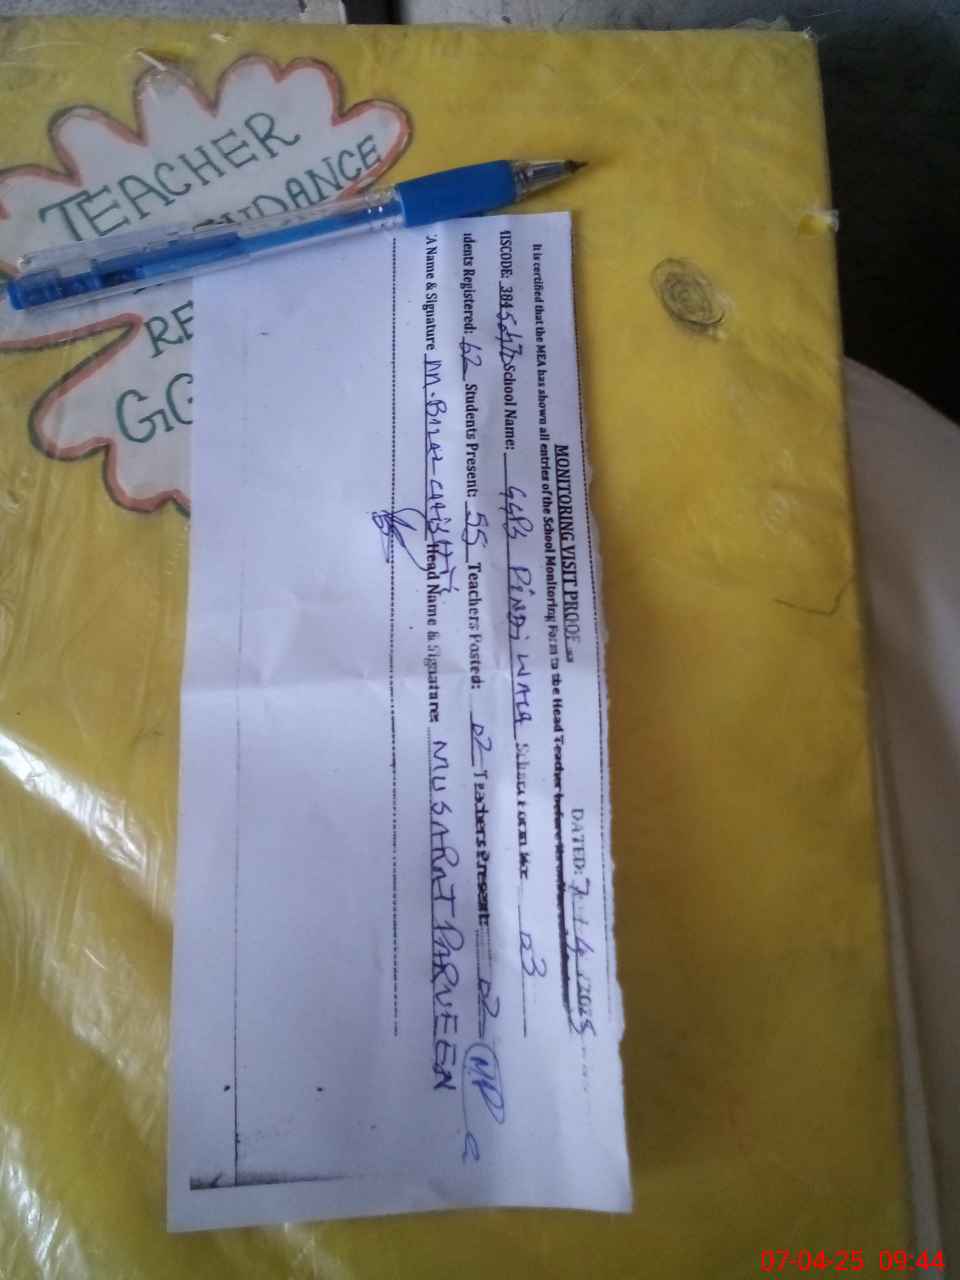 TEACHER
RE
GG
MONITORING VISIT PROOF
DATED: 7 / 4 /2025
It is certified that the MEA has shown all entries of the School Monitoring Form to the Head Teacher before
School Name: GGPS PINDI WALA School Form No: 03
dents Registered: 62 Students Present: 55 Teachers Posted: 02 Teachers Present: 02
A Name & Signature M. BILAL CHISHTI Head Name & Signature: MUSARAT PARVEEN
MP
07-04-25 09:44